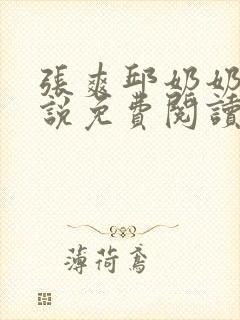 張爽邱奶奶
說免費閱讀
薄荷鳶